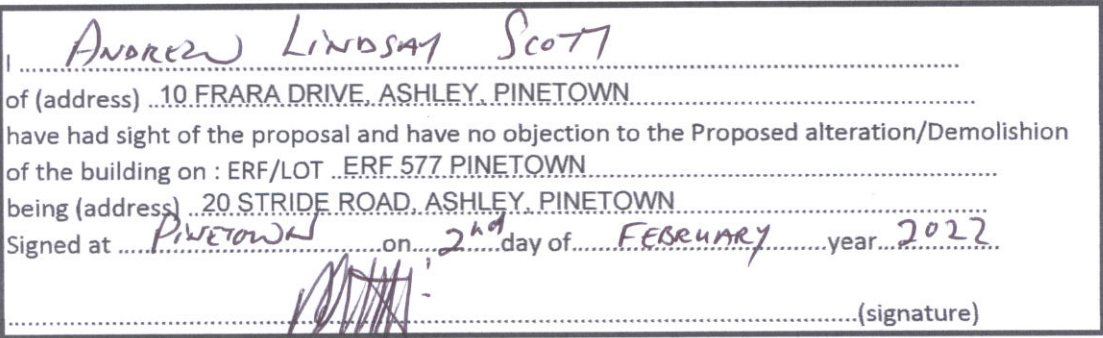 I ANDREW LINDSAY SCOTT
of (address) 10 FRARA DRIVE, ASHLEY, PINETOWN
have had sight of the proposal and have no objection to the Proposed alteration/Demolishion
of the building on : ERF/LOT ERF 577 PINETOWN
being (address) 20 STRIDE ROAD, ASHLEY, PINETOWN
Signed at PINETOWN on 2nd day of FEBRUARY year 2022
(signature)